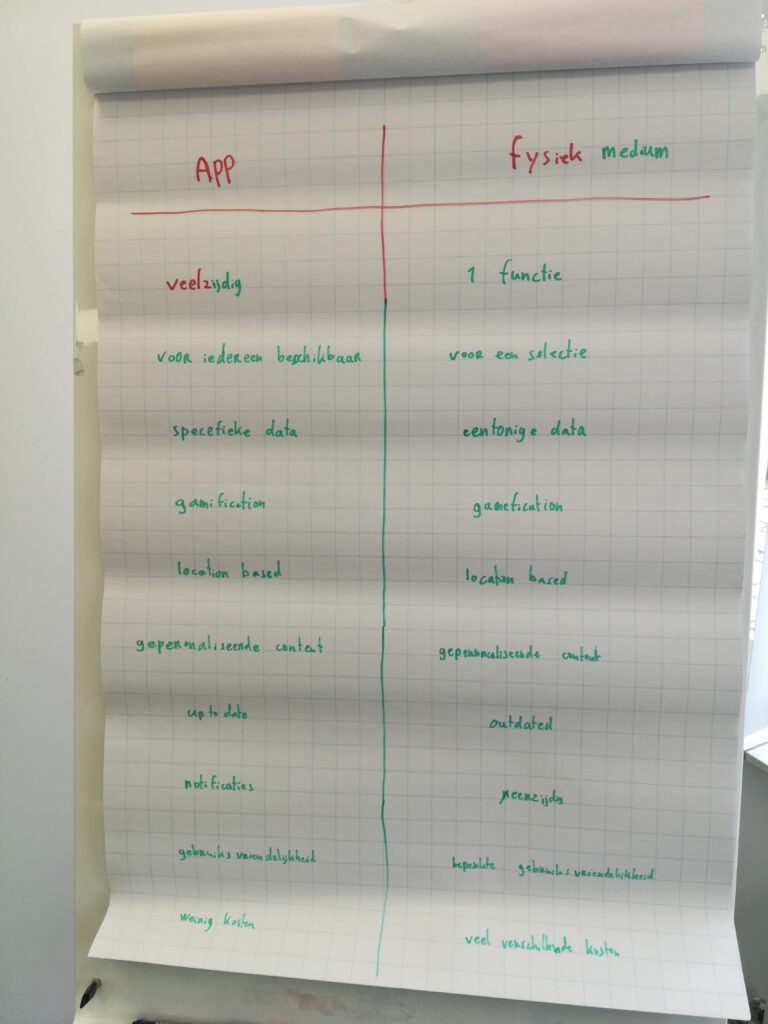 APP
fysiek medium
veelzijdig
1 functie
voor iedereen beschikbaar
voor een selectie
specefieke data
eentonige data
gamification
gamefication
location based
location based
gepersonaliseerde content
gepersonaliseerde content
up to date
outdated
notificaties
eenzijdig
gebruiksvriendelijkheid
beperkte gebruiksvriendelijkheid
weinig kosten
veel verschillende kosten